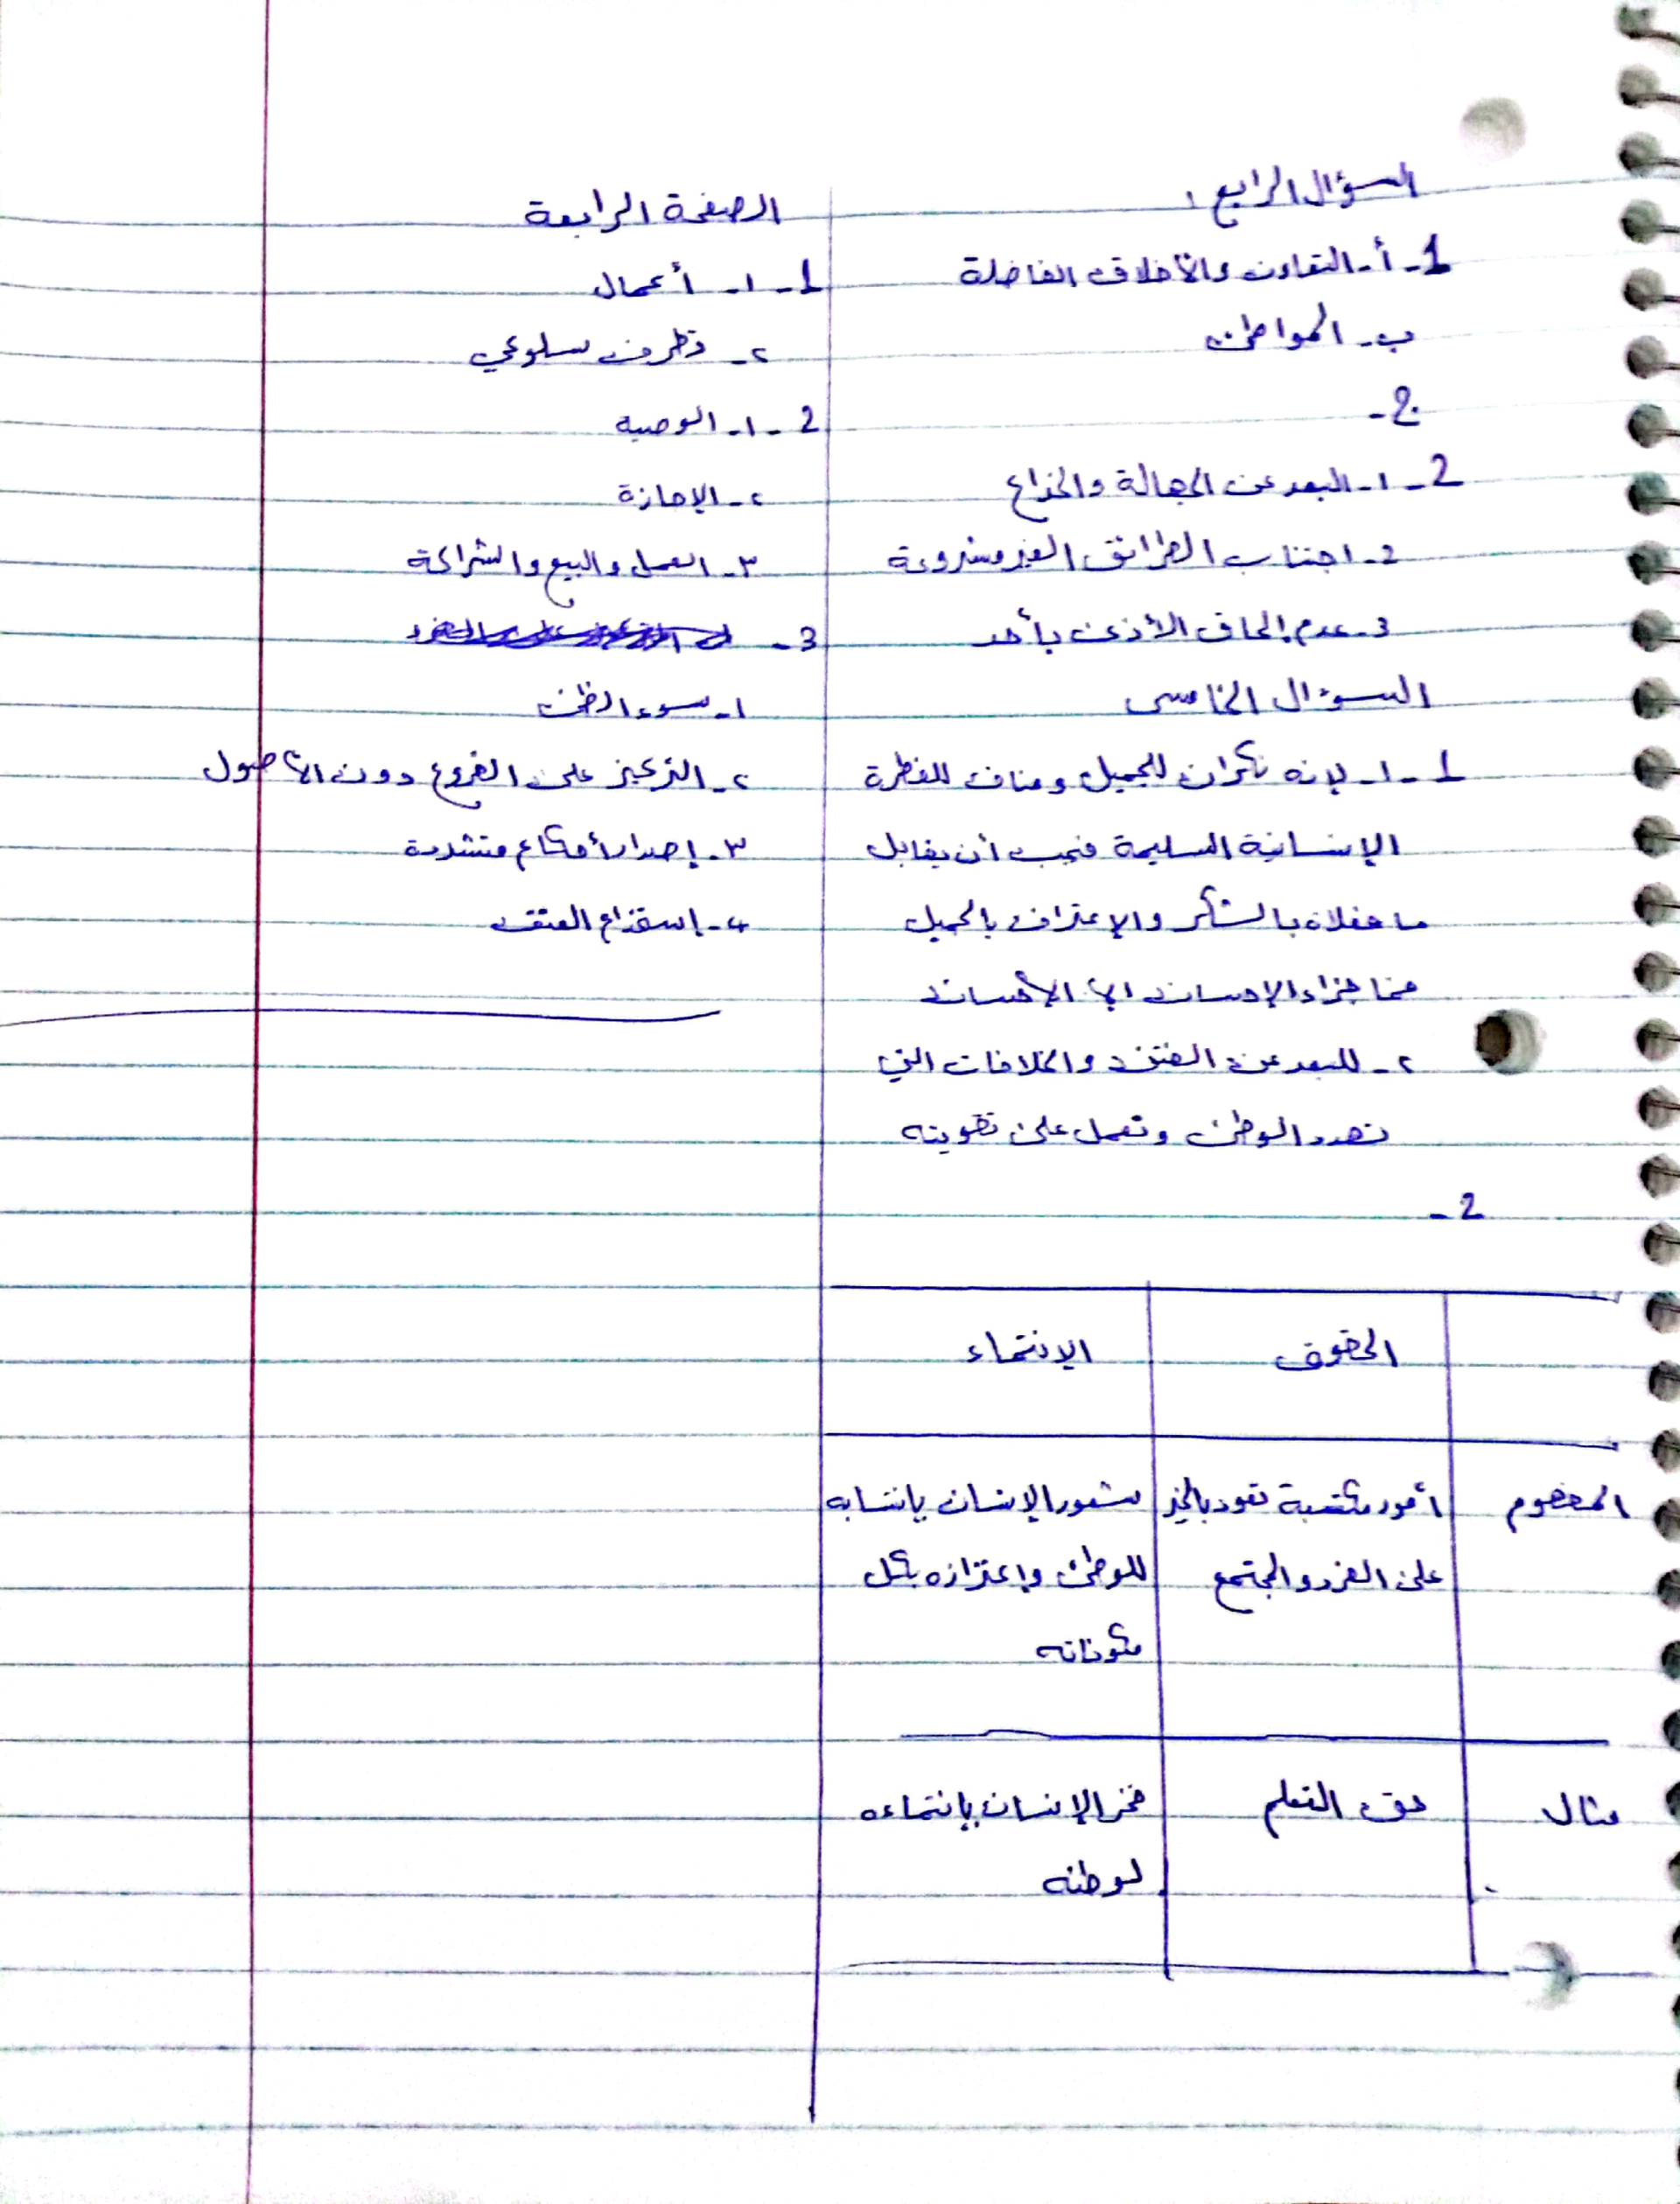 السؤال الرابع :
1- أ- التعاون والأخلاق الفاضلة
ب- المواطن
2-
2- ١- البعد عن الجهالة والخداع
2- اجتناب الطرائق الغير مشروعة
3- عدم إلحاق الأذى بأحد
السؤال الخامس
1- ١- لإنه نكران للجميل ومناف للفطرة
الإنسانية السليمة فيجب أن يقابل
بالشكر والإعتراف بالجميل
فما جزاء الإحسان إلا الإحسان
٢- للبعد عن الفتن والخلافات التي
تهدد الوطن وتعمل على تقويته
2-
الحقوق الإنتماء
المفهوم أمور مكتسبة تعود بالخير شعور الإنسان بإنتسابه
على الفرد والمجتمع للوطن وإعتزازه بكل
مكوناته
مثال حق التعلم فخر الإنسان بإنتماءه
لوطنه
الصفحة الرابعة
1- ١- أعمال
٢- تطرف سلوكي
2- ١- الوصية
٢- الإجازة
٣- العمل والبيع والشراكة
3-
١- سوء الظن
٢- التركيز على الفروع دون الأصول
٣- إصدار أحكام متشددة
٤-